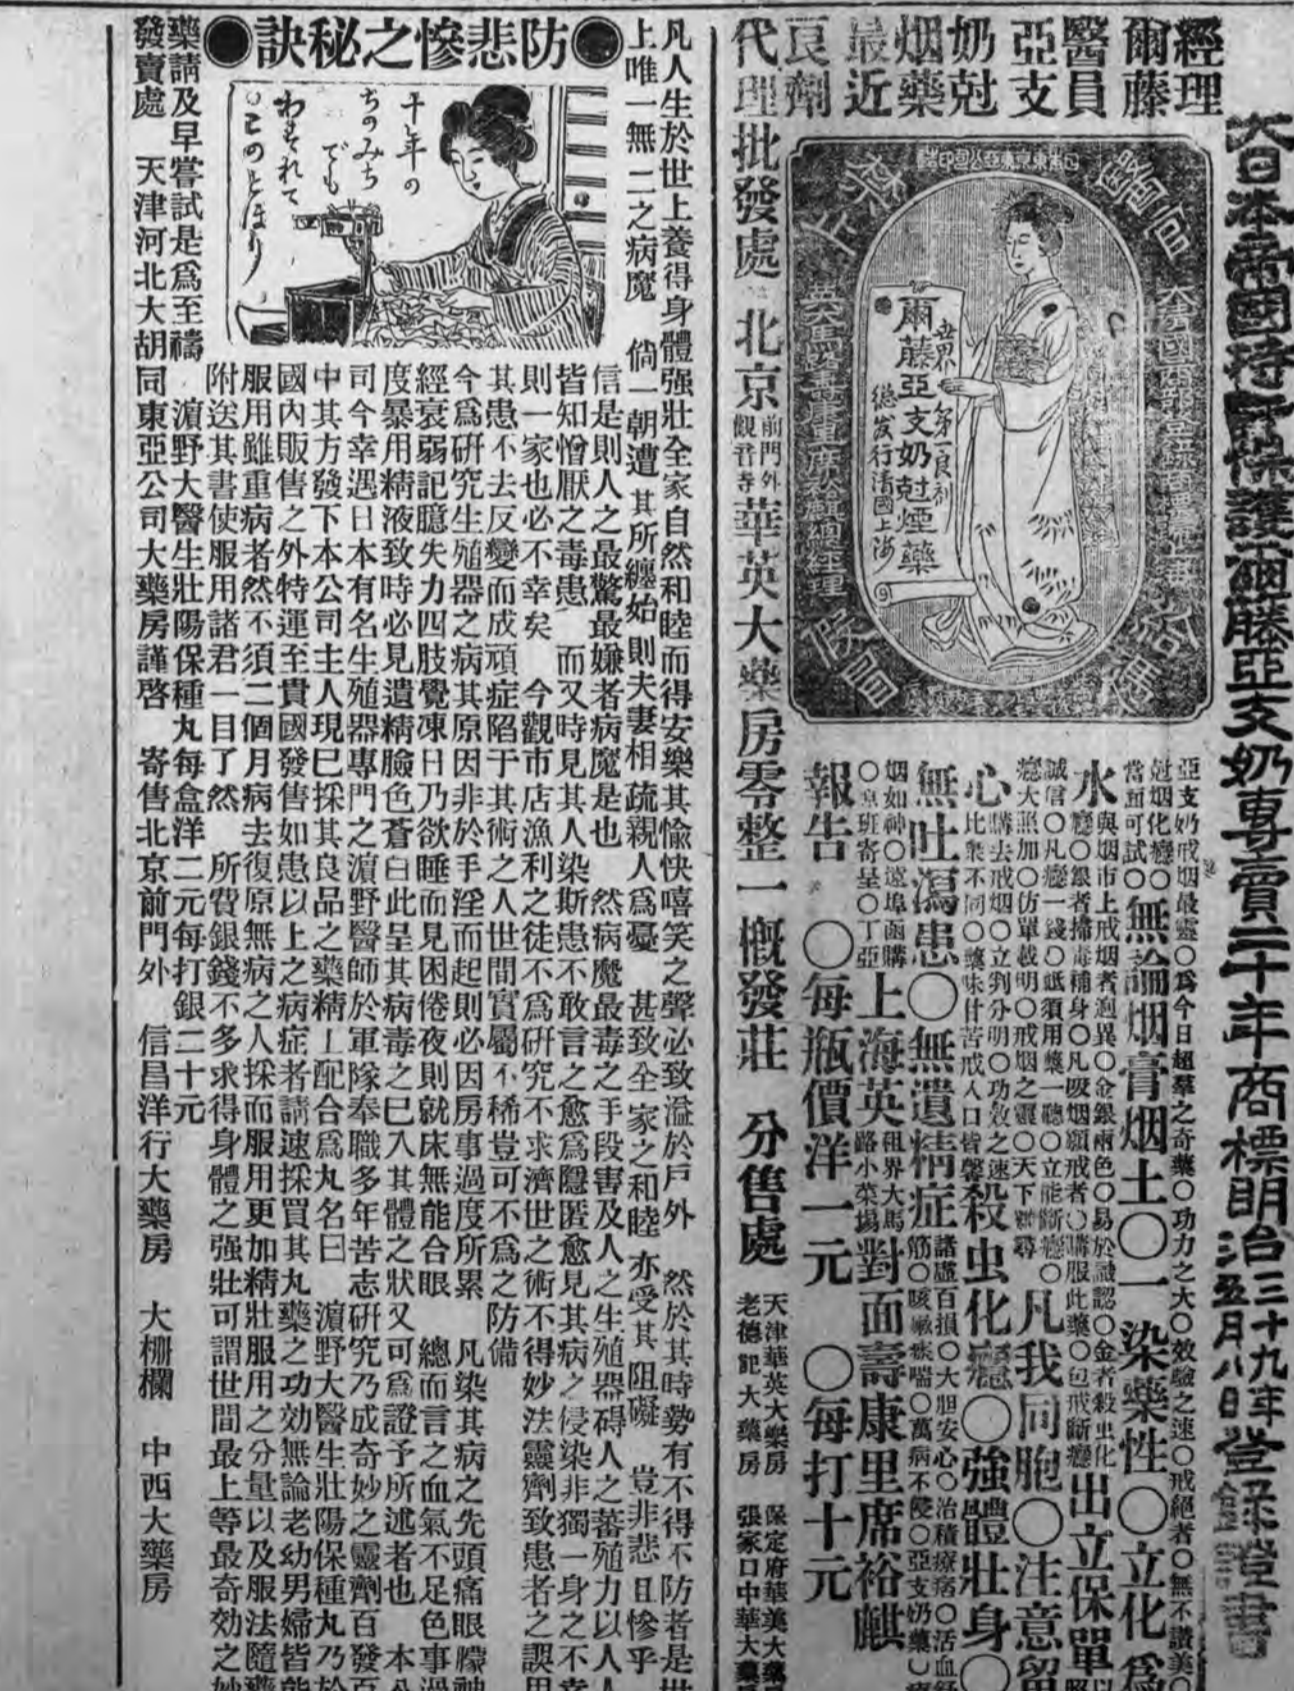 大日本帝國特許保護爾藤亞支奶專賣二十年商標明治三十九年五月八日登録證書
經理
爾藤
醫員
亞支
奶尅
烟藥
最近
良劑
代理批發處 北京前門外觀音寺華英大藥房零整一概發莊 分售處
天津華英大藥房 保定府華美大藥
老德記大藥房 張家口中華大藥
爾藤亞支奶尅煙藥
世界第一良劑
總發行清國上海
亞支奶戒烟最靈〇爲今日超羣之奇藥〇功力之大〇效驗之速〇戒絕者〇無不讚美〇
尅烟化癮〇〇無論烟膏烟土〇一染藥性〇立化爲
當面可試〇
水
與烟市上戒烟者迥異〇金銀兩色〇易於認〇金者殺虫化
癮〇銀者掃毒補身〇凡吸烟願戒者〇購服此藥〇包戒斷癮
出立保單
誠信〇凡癮一錢〇祗須用藥一聽〇立能斷癮〇
癮大照加〇仿單載明〇戒烟之靈〇天下難尋
凡我同胞〇注意留
心
購去戒烟〇立判分明〇功效之速
比衆不同〇藥味甘苦戒人口皆馨
殺虫化癮〇強體壯身〇
無吐瀉患〇無遺精症
諸虛百損〇大胆安心〇治積療病〇活血舒
筋〇咳嗽痰喘〇萬病不侵〇亞支奶藥〇
烟如神〇遠埠函購
〇原班寄呈〇丁亞
上海英租界大馬路小菜場對面壽康里席裕麒
報告 〇每瓶價洋一元 〇每打十元
凡人生於世上養得身體强壯全家自然和睦而得安樂其愉快嘻笑之聲必致溢於戶外 然於其時勢有不得不防者是世
上唯一無二之病魔 倘一朝遭其所纏始則夫妻相疏親人爲憂 甚致全家之和睦亦受其阻礙 豈非悲且慘乎
●防悲慘之秘訣●
千年の
ちのみち
でも
わすれて
信是則人之最驚最嫌者病魔是也 然病魔最毒之手段害及人之生殖器碍人之蕃殖力以人
皆知憎厭之毒患 而又時見其人染斯患不敢言之愈爲隱匿愈見其病之侵染非獨一身之不幸
則一家也必不幸矣 今觀市店漁利之徒不爲研究不求濟世之術不得妙法靈劑致患者之誤用
其患不去反變而成頑症陷于其術之人世間實屬不稀豈可不爲之防備
今爲研究生殖器之病其原因非於手淫而起則必因房事過度所累 凡染其病之先頭痛眼朦神
經衰弱記臆失力四肢覺凍日乃欲睡而見困倦夜則就床無能合眼 總而言之血氣不足色事過
度暴用精液致時必見遺精臉色蒼白此呈其病毒之已入其體之狀又可爲證予所述者也 本公
司今幸遇日本有名生殖器專門之濵野醫師於軍隊奉職多年苦志研究乃成奇妙之靈劑百發百
中其方發下本公司主人現已採其良品之藥精工配合爲丸名曰 濵野大醫生壯陽保種丸乃於
國內販售之外特運至貴國發售如患以上之病症者請速採買其丸藥之功効無論老幼男婦皆能
服用雖重病者然不須二個月病去復原無病之人採而服用更加精壯服用之分量以及服法隨藥
附送其書使服用諸君一目了然 所費銀錢不多求得身體之强壯可謂世間最上等最奇効之妙
藥請及早嘗試是爲至禱 濵野大醫生壯陽保種丸每盒洋二元每打銀二十元
發賣處 天津河北大胡同東亞公司大藥房謹啓 寄售北京前門外 信昌洋行大藥房 大栅欄 中西大藥房